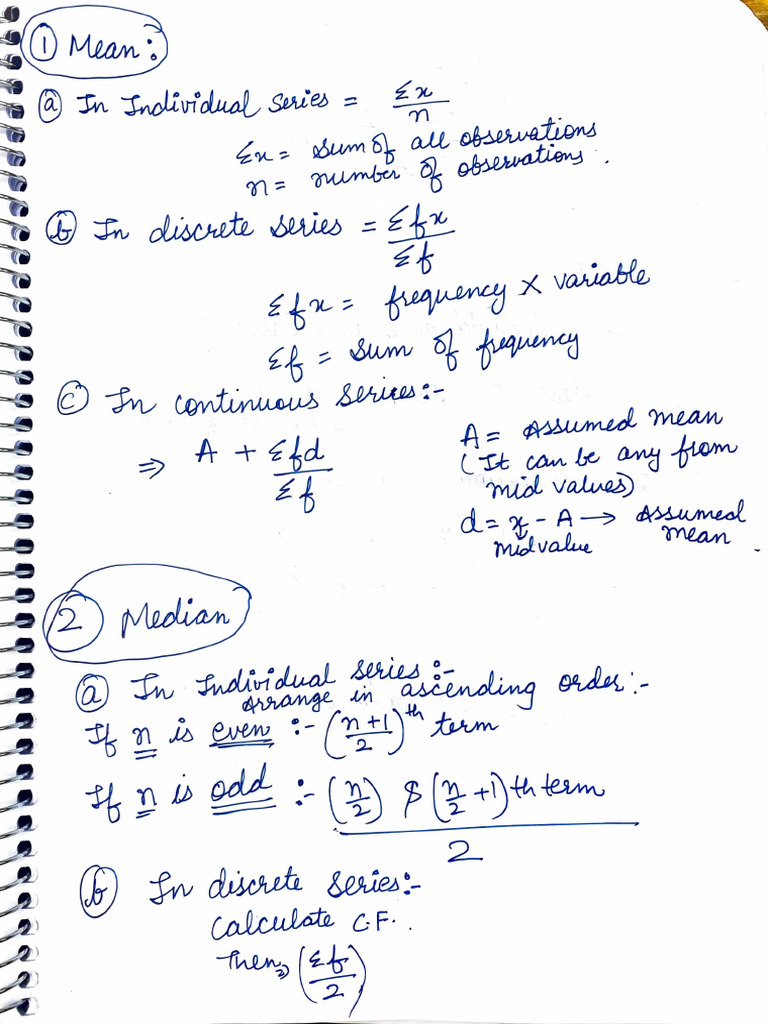 ① Mean :
ⓐ In Individual series = Σx/n
Σx = sum of all observations
n = number of observations.
ⓑ In discrete series = Σfx/Σf
Σfx = frequency × variable
Σf = sum of frequency
ⓒ In continuous series:-
⇒ A + Σfd/Σf
A = Assumed mean
(It can be any from
mid values)
d = x - A → Assumed
midvalue mean.
② Median
ⓐ In Individual series:-
Arrange in ascending order:-
If n is even :- (n+1/2)th term
If n is odd :- (n/2) & (n/2 +1)th term
2
ⓑ In discrete series:-
Calculate C.F.
Then⇒ (Σf/2)